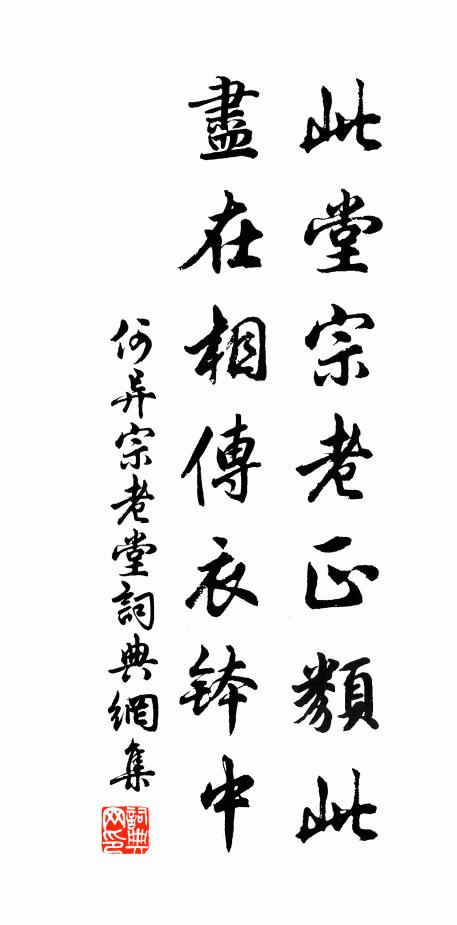 此堂宗老正類此
盡在相傳衣鉢中
何异宗老堂詞典網集
詞典网印